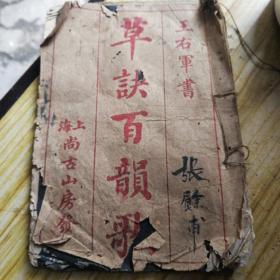 王右軍書
草訣百韻歌
上海
尚古山房發